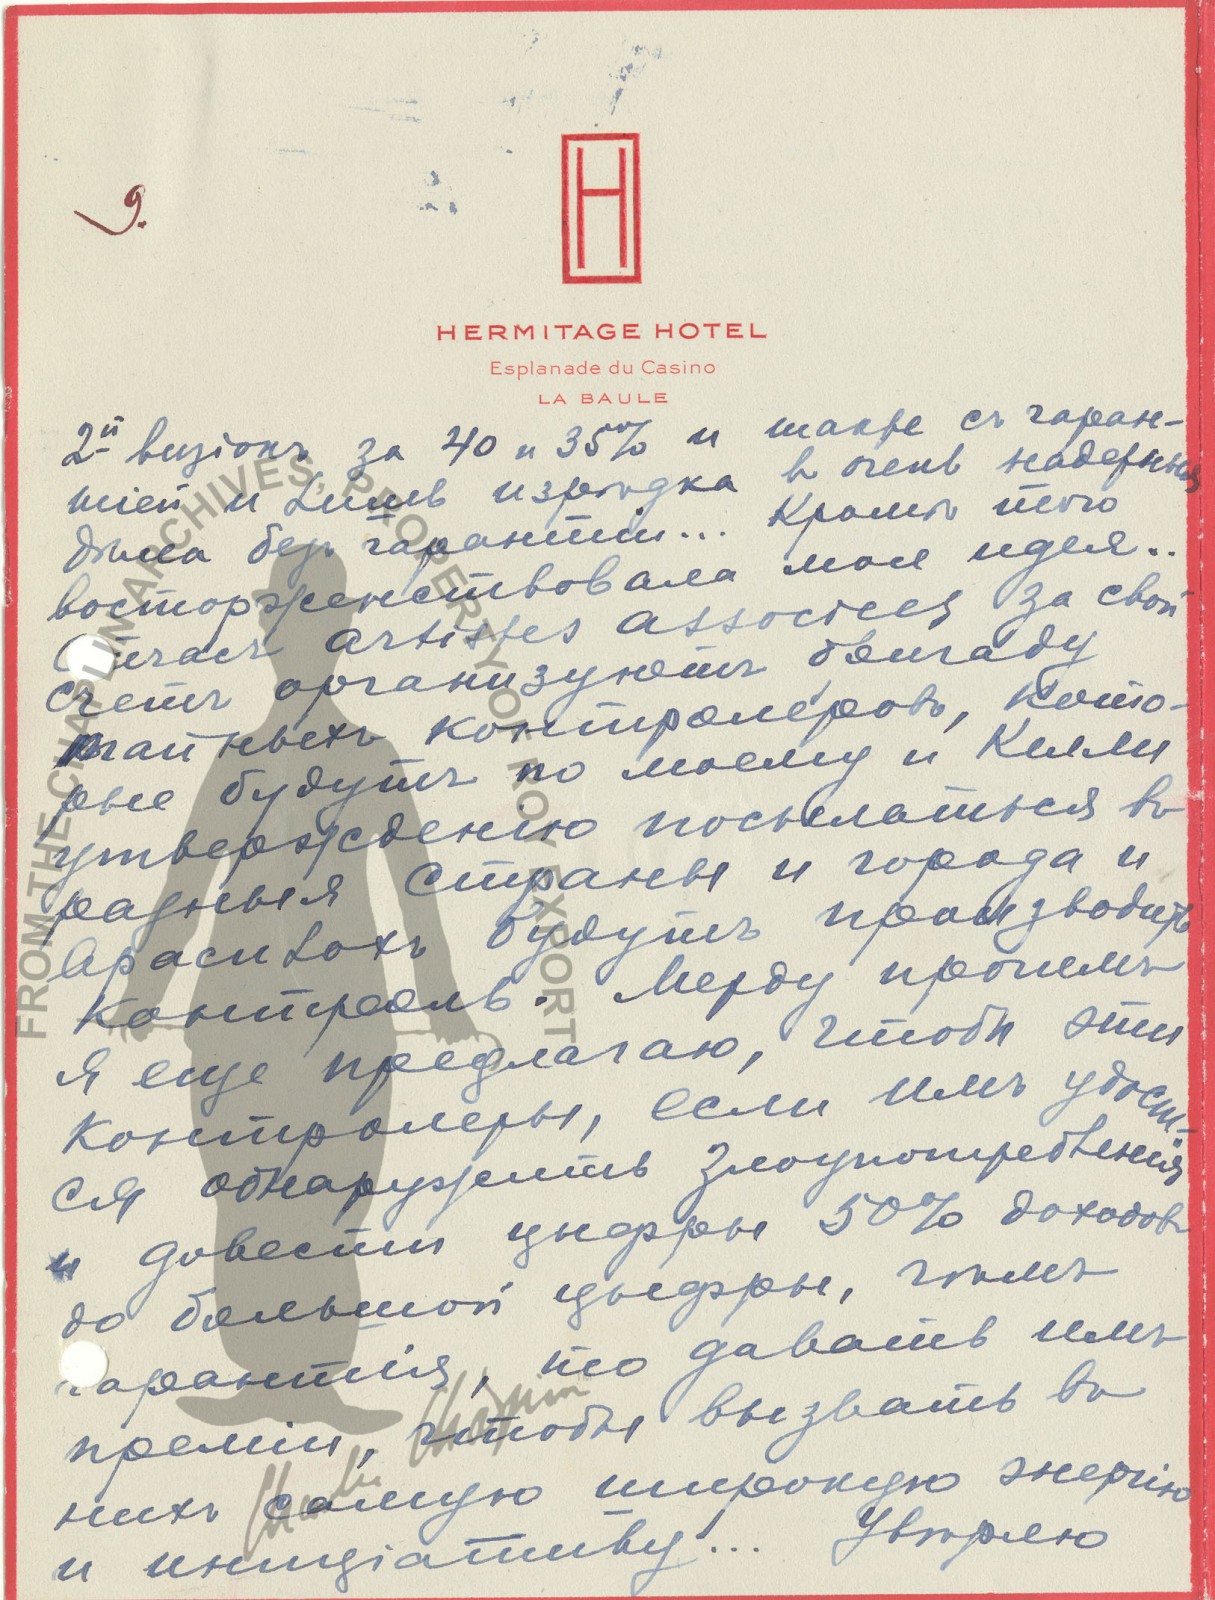 9.
H
HERMITAGE HOTEL
Esplanade du Casino
LA BAULE
2й визіонъ за 40 и 35% и также съ гаран-
тіей и лишь изрѣдка в очень надежныя
дома безъ гарантіи... Кромѣ того
восторженствовала моя идея..
Сейчасъ artistes associees за свой
счетъ организуютъ бригаду
тайныхъ контролеровъ, кото-
рые будутъ по моему и Келли
утвержденію посылаться въ
разныя страны и города и
врасплохъ будутъ производить
контроль. Между прочемъ
я еще предлагаю, чтобы эти
контролеры, если имъ удаст-
ся обнаружить злоупотребленія
и довести цыфры 50% доходовъ
до большой цыфры, чѣмъ
гарантія, то давать имъ
преміи, чтобы вызвать въ
нихъ самую широкую энергію
и иниціативу!... Увѣряю
FROM THE CHAPLIN ARCHIVES, PROPERTY OF ROY EXPORT
Charlie Chaplin